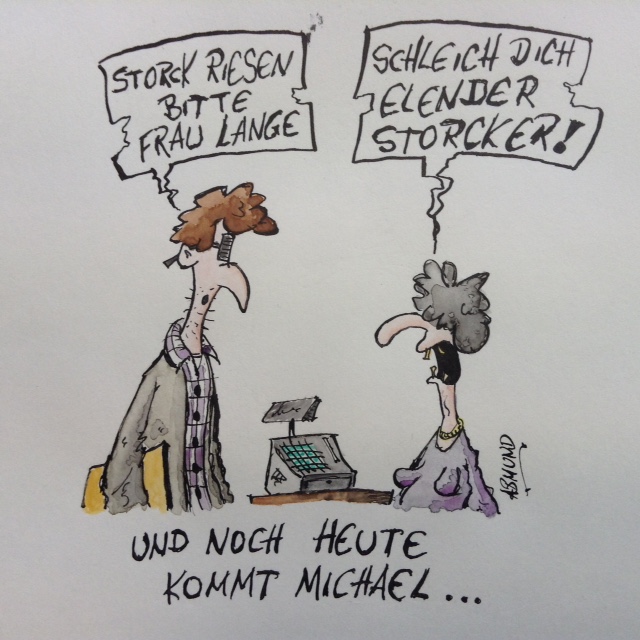 STORCK RIESEN
BITTE
FRAU LANGE
SCHLEICH DICH
ELENDER
STORCKER!
ASMUND
UND NOCH HEUTE
KOMMT MICHAEL...